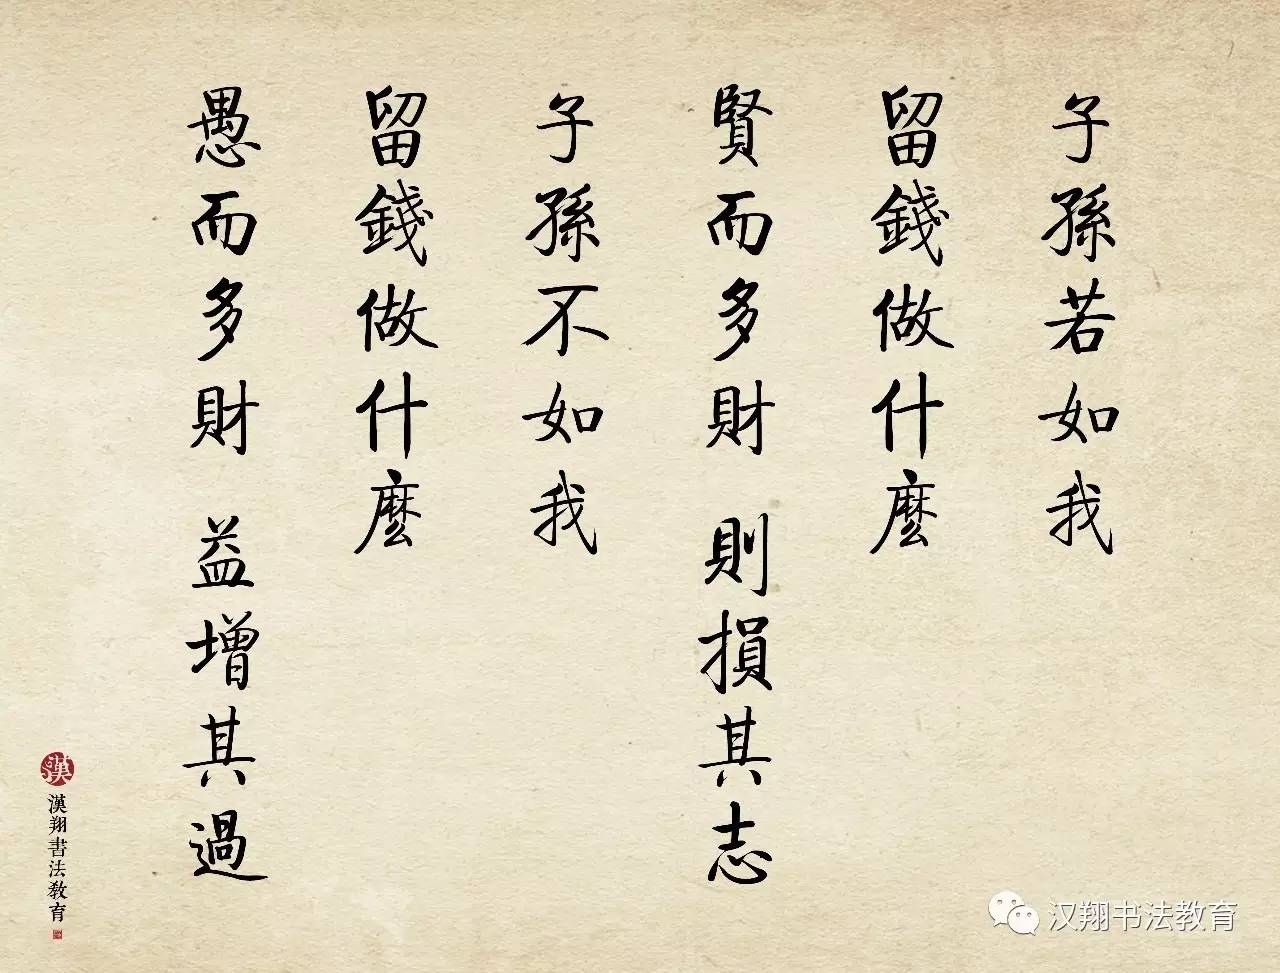 子孫若如我
留錢做什麼
賢而多財 則損其志
子孫不如我
留錢做什麼
愚而多財 益增其過
漢
漢翔書法教育
汉翔书法教育